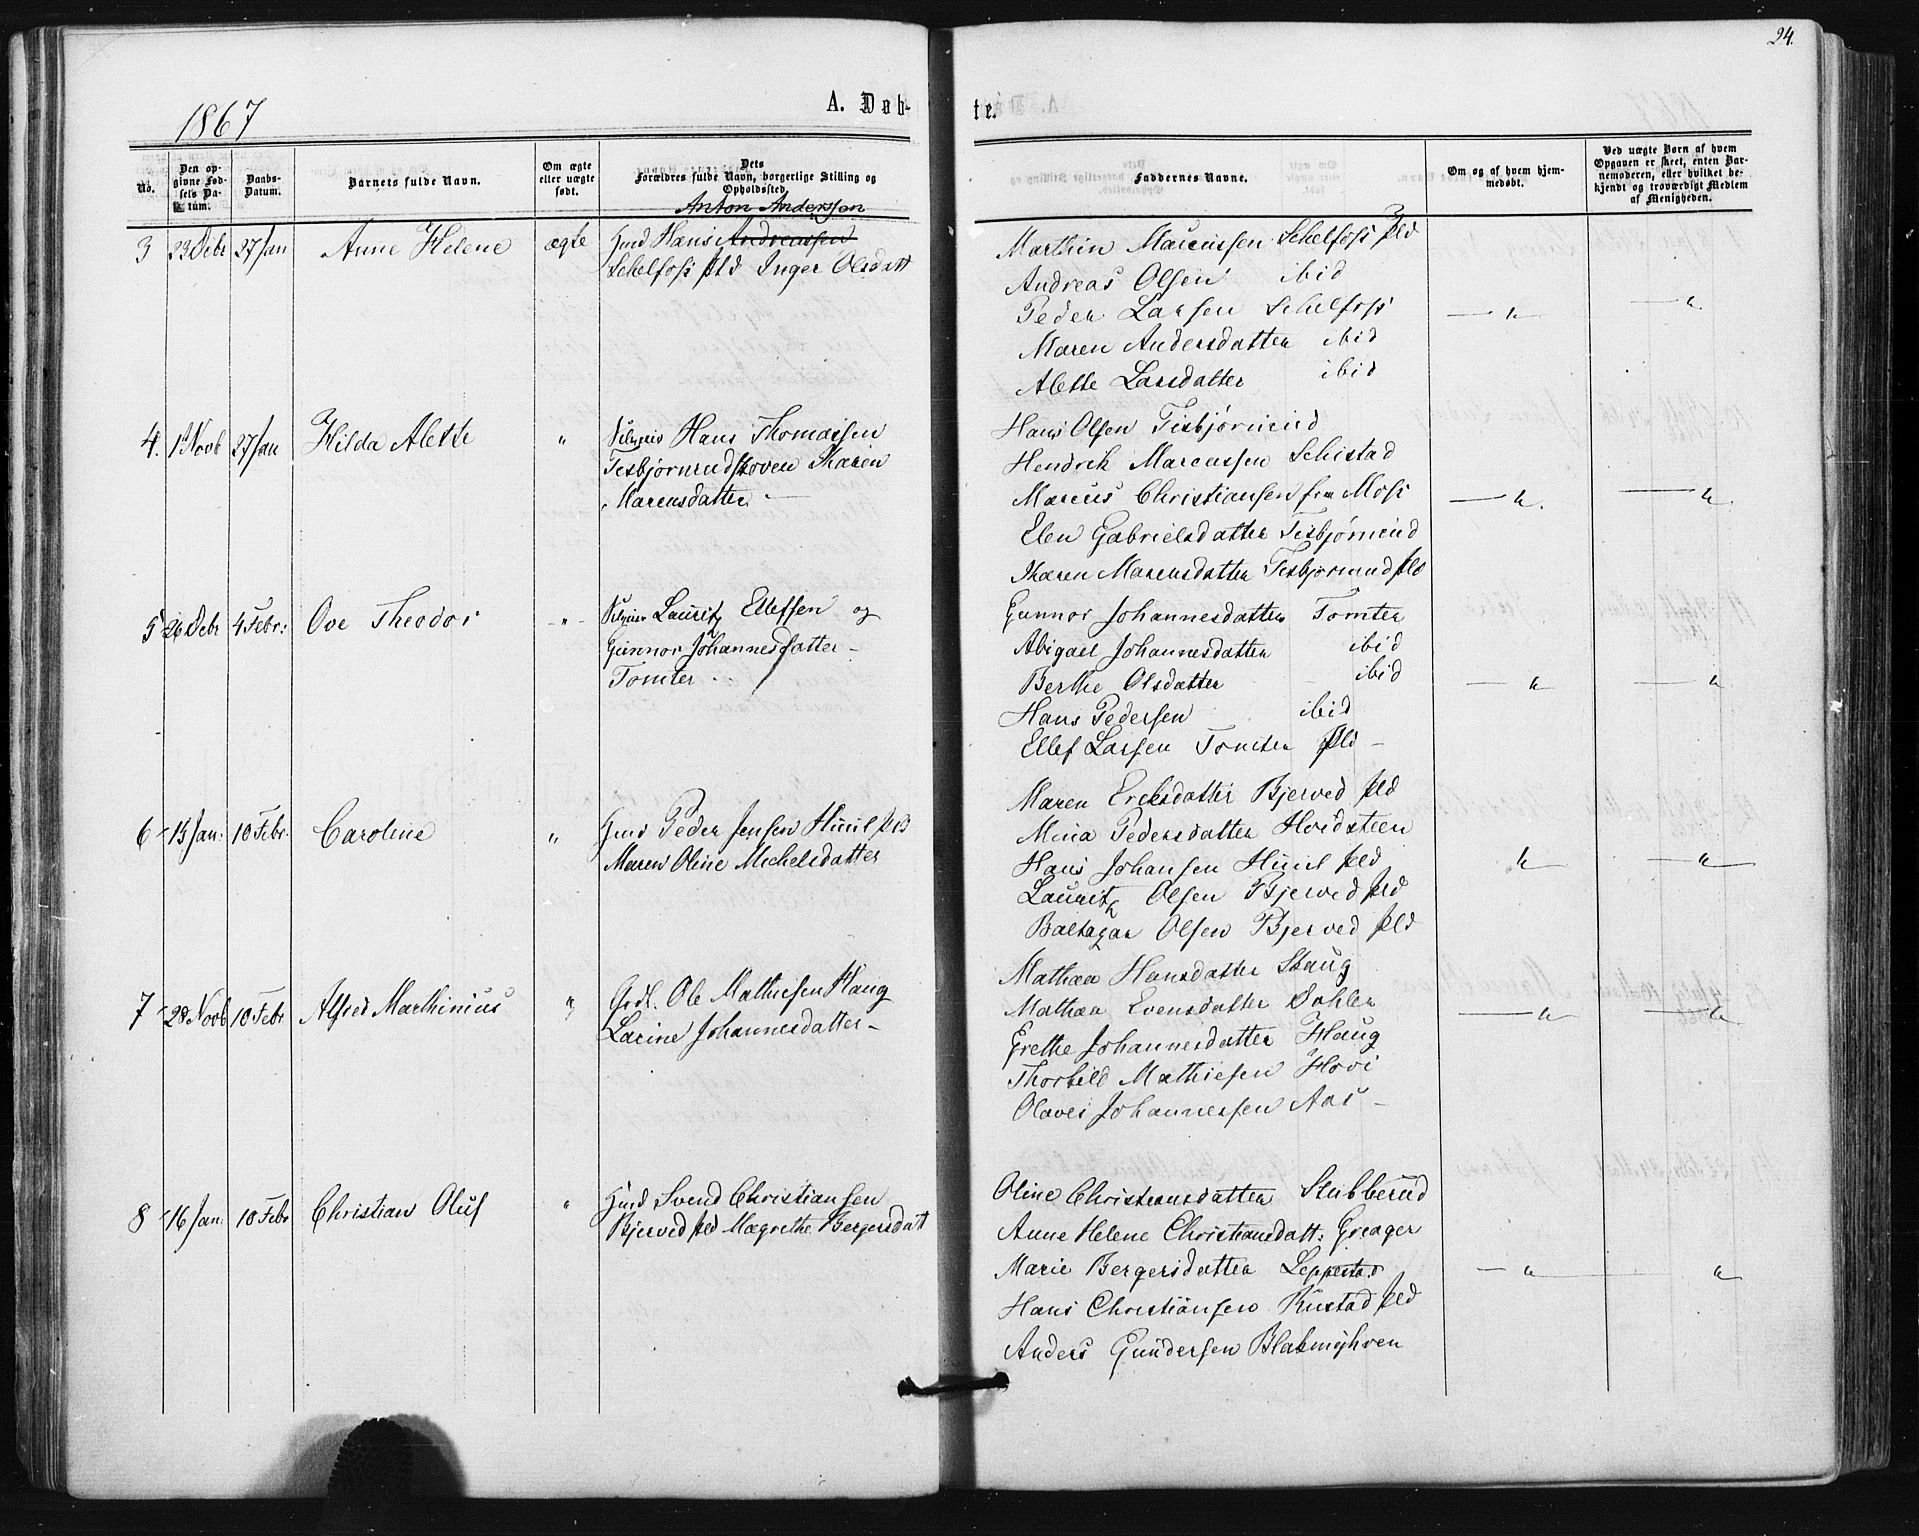 24.
1867
A. Døb-
te.
No.
Den op-
givne Fød-
sels Da-
tum.
Daabs-
Datum.
Barnets fulde Navn.
Om ægte
eller uægte
født.
Dets
Forældres fulde Navn, borgerlige Stilling og
Opholdssted.
Faddernes Navne.
Om og af hvem hjem-
medøbt.
Ved uægte Børn af hvem
Opgaven er skeet, enten Bar-
nemoderen, eller hvilket be-
kjendt og troværdigt Medlem
af Menigheden.
Anton Anderssen
3 23 Debr 27 Jan Anne Helene ægte Hmd Hans Andreassen
Schelfoss pld Inger Olsdatt
Marthin Marcussen Schelfoss pld
Andreas Olsen ibid
Peder Larsen Schelfoss
Maren Andersdatter ibid
Alette Larsdatter ibid
4. 1 Novb 27 Jan Hilda Alette " Hans Thomassen
Tesbjørnrudskoven Maren
Marcusdatter
Hans Olsen Tisbjørnrud
Hendrik Marcussen Schistad
Marcus Christiansen fra Moss
Elen Gabrielsdatter Tisbjørnrud
Maren Marcusdatter Tesbjørnrud pld
5 26 Debr 4 Febr: Ove Theodor " Lauritz Ellefsen og
Gunnor Johannesdatter
Tomter
Gunnor Johannesdatter Tomter
Abigael Johannesdatter ibid
Berthe Olsdatter ibid
Hans Pedersen ibid
Ellef Larsen Tomter pld
6 15 Jan: 10 Febr. Caroline " Hmd Peder Jensen Huul pld
Maren Oline Michelsdatter
Maren Ericksdatter Bjerved pld
Mina Pedersdatter Hvidsteen
Hans Johansen Huul pld
Lauritz Olsen Bjerved pld
Baltazar Olsen Bjerved pld
7 28 Novb 10 Febr Alfred Marthinius " Grdl. Ole Mathiesen Haug
Larine Johannesdatter
Mathea Hansdatter Skaug
Mathea Evensdatter Dahler
Grethe Johannesdatter Haug
Thorkild Mathiesen Hovi
Olaves Johannessen Aas
8 16 Jan: 10 Febr Christian Oluf " Hmd Svend Christiansen
Bjerved pld Magrethe Bergersdatt
Oline Christiansdatter Stubberud
Anne Helene Christiansdatt: Greager
Marie Bergersdatter Leppestad
Hans Christiansen Rustad pld
Anders Gundersen